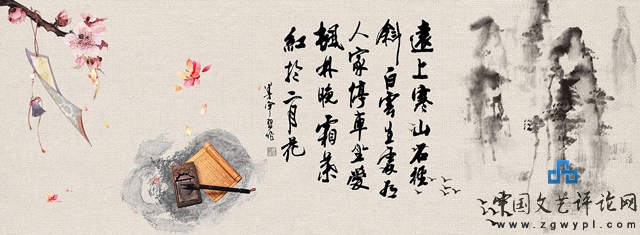 遠上寒山石徑
斜白雲生處有
人家停車坐愛
楓林晚霜葉
紅於二月花
中国文艺评论网
www.zgwypl.com